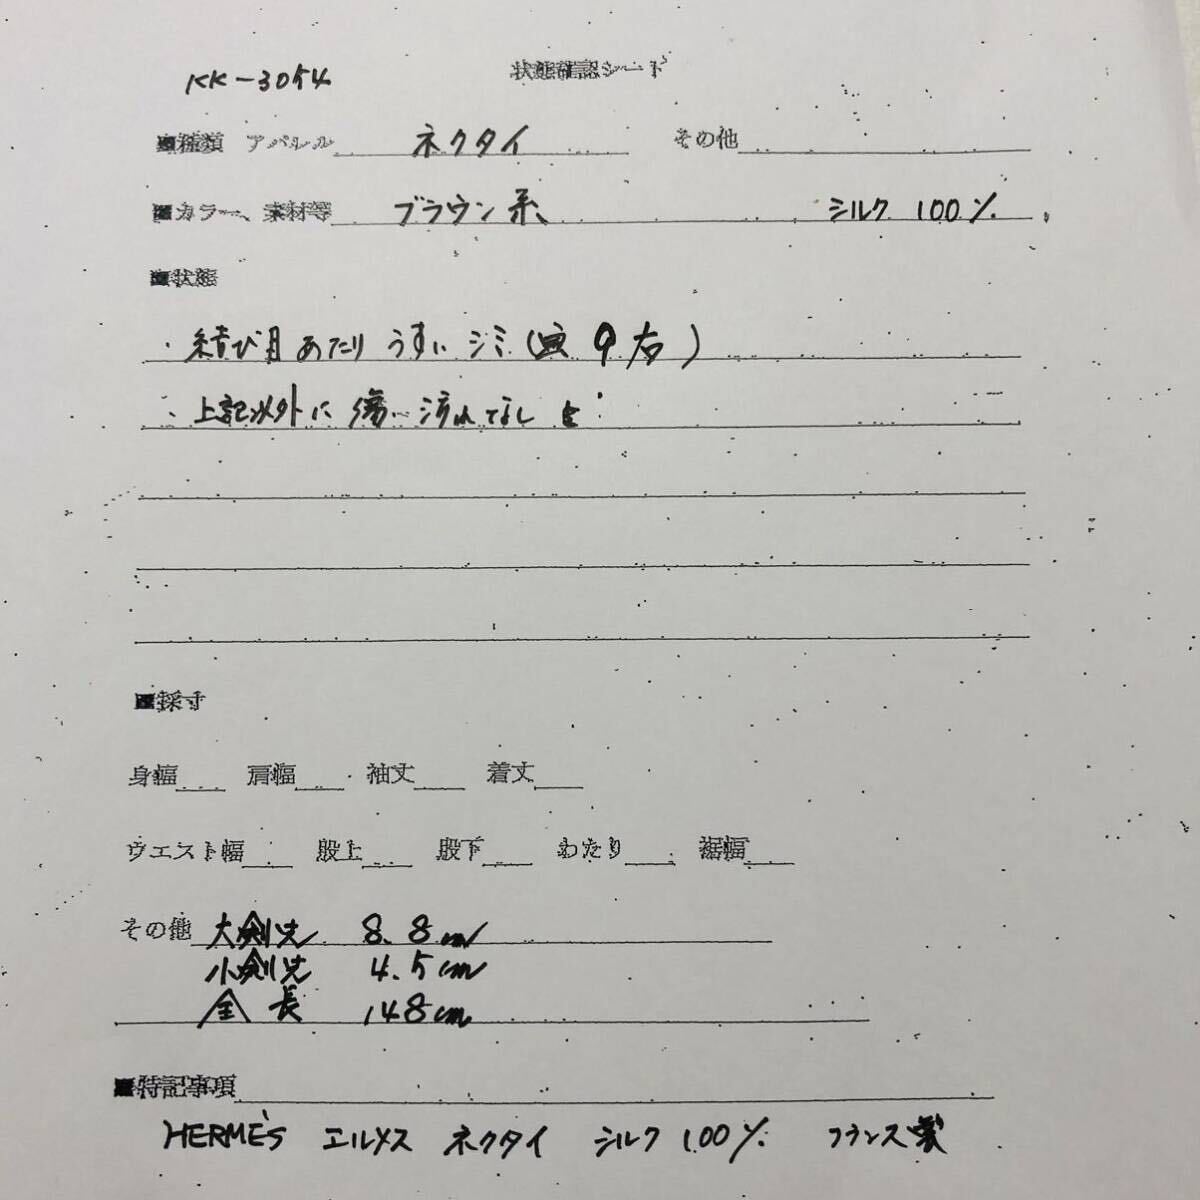 KK-3054
状態確認シート
■種類 アパレル ネクタイ その他
■カラー、素材等 ブラウン系 シルク 100%
■状態
・結び目あたり うすい シミ(画 9 右)
・上記以外に 傷い 汚れてなし
■採寸
身幅 肩幅 袖丈 着丈
ウエスト幅 股上 股下 わたり 裾幅
その他 大剣先 8.8cm
小剣先 4.5cm
全長 148cm
■特記事項
HERMÈS エルメス ネクタイ シルク 100% フランス製